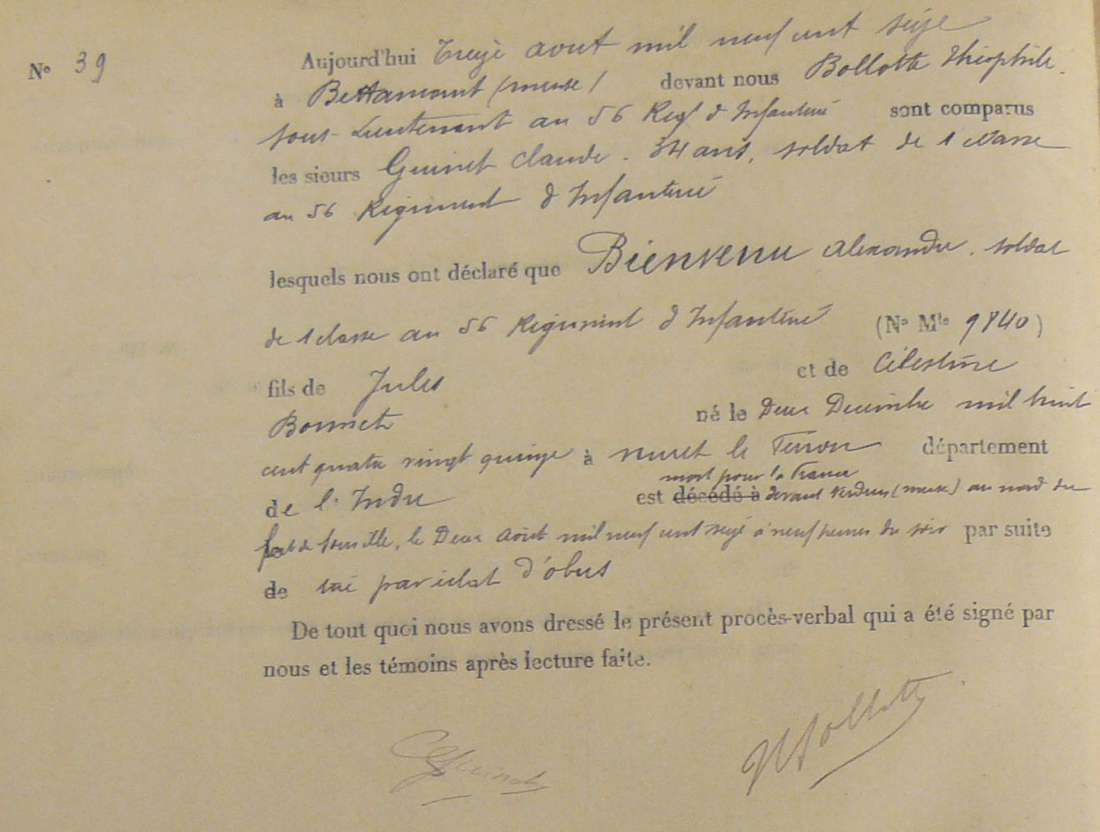 N° 39
Aujourd'hui Treize aout mil neuf cent seize
à Bettancourt (meuse) devant nous Bollotte Théophile
sous-Lieutenant au 56 Regt d Infanterie sont comparus
les sieurs Guinet Claude. 34 ans, soldat de 1 classe
au 56 Régiment d Infanterie
lesquels nous ont déclaré que Bienvenu Alexandre. soldat
de 1 classe au 56 Régiment d Infanterie (N° Mle 9840)
fils de Jules et de Célestine
Bonnet né le Deux Decembre mil huit
cent quatre vingt quinze à département
de l'Indre mort pour la France
est décédé à devant Verdun (meuse) au nord du
fort de Souville, le Deux Août mil neuf cent seize à neuf heures du soir par suite
de tué par éclat d'obus
De tout quoi nous avons dressé le présent procès-verbal qui a été signé par
nous et les témoins après lecture faite.
CGuinet
Bollotte